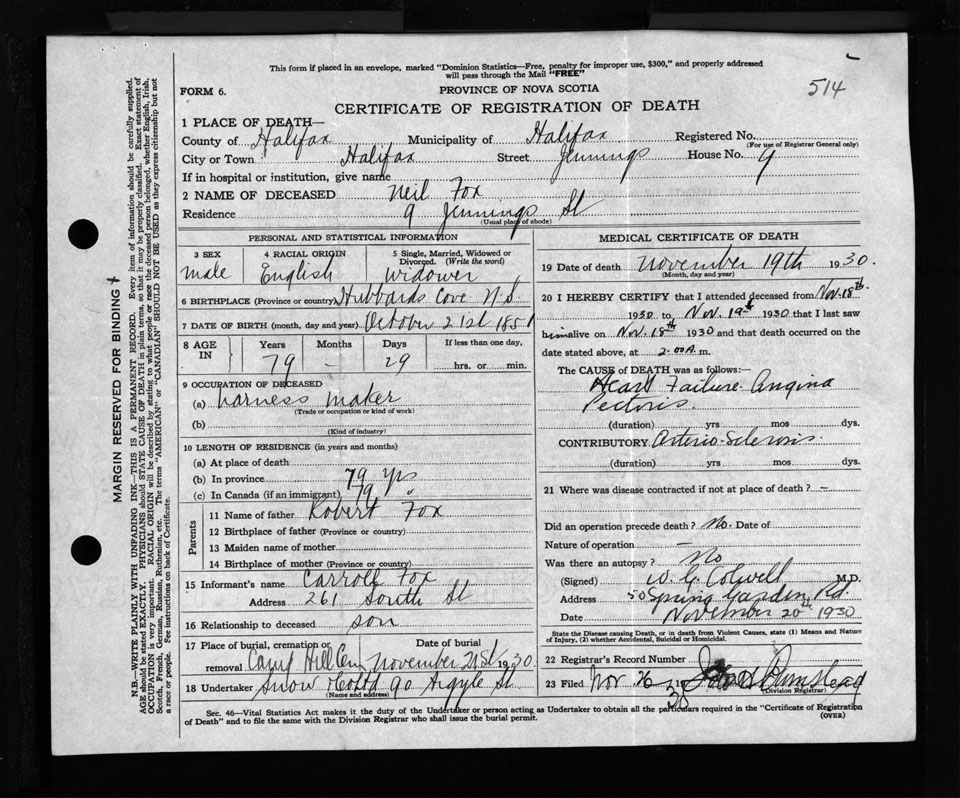 This form if placed in an envelope, marked "Dominion Statistics—Free, penalty for improper use, $300," and properly addressed
will pass through the Mail "FREE"
514
FORM 6.
PROVINCE OF NOVA SCOTIA
CERTIFICATE OF REGISTRATION OF DEATH
1 PLACE OF DEATH—
County of Halifax Municipality of Halifax Registered No.
(For use of Registrar General only)
City or Town Halifax Street Jennings House No. 9
If in hospital or institution, give name
2 NAME OF DECEASED Neil Fox
Residence 9 Jennings St
(Usual place of abode)
PERSONAL AND STATISTICAL INFORMATION
3 SEX 4 RACIAL ORIGIN 5 Single, Married, Widowed or Divorced. (Write the word)
male English widower
6 BIRTHPLACE (Province or country) Hubbards Cove N.S.
7 DATE OF BIRTH (month, day and year) October 21st 1851
8 AGE IN Years Months Days If less than one day,
79 — 29 hrs. or min.
9 OCCUPATION OF DECEASED
(a) harness maker
(Trade or occupation or kind of work)
(b)
(Kind of industry)
10 LENGTH OF RESIDENCE (in years and months)
(a) At place of death
(b) In province 79 yrs
(c) In Canada (if an immigrant) 79 "
Parents
11 Name of father Robert Fox
12 Birthplace of father (Province or country)
13 Maiden name of mother
14 Birthplace of mother (Province or country)
15 Informant's name Carroll Fox
Address 261 South St
16 Relationship to deceased son
17 Place of burial, cremation or removal Date of burial
Camp Hill Cem November 21st 1930
18 Undertaker Snow & Co Ltd 90 Argyle St
(Name and address)
MEDICAL CERTIFICATE OF DEATH
19 Date of death November 19th 1930.
(Month, day and year)
20 I HEREBY CERTIFY that I attended deceased from Nov. 18th
1930 to Nov. 19th 1930 that I last saw
him alive on Nov. 18th 1930 and that death occurred on the
date stated above, at 2.00 A. m.
The CAUSE of DEATH was as follows:—
Heart Failure. Angina
Pectoris.
(duration) yrs mos dys.
CONTRIBUTORY Arterio-Sclerosis.
(duration) yrs mos dys.
21 Where was disease contracted if not at place of death? —
Did an operation precede death? No. Date of
Nature of operation —
Was there an autopsy? No
(Signed) W. G. Colwell M.D.
Address 50 Spring Garden Rd.
Date November 20th 1930
State the Disease causing Death, or in death from Violent Causes, state (1) Means and Nature
of Injury, (2) whether Accidental, Suicidal or Homicidal.
22 Registrar's Record Number
23 Filed Nov 26 19 30
(Division Registrar)
Sec. 46—Vital Statistics Act makes it the duty of the Undertaker or person acting as Undertaker to obtain all the particulars required in the "Certificate of Registration
of Death" and to file the same with the Division Registrar who shall issue the burial permit.
(OVER)
MARGIN RESERVED FOR BINDING
N.B.—WRITE PLAINLY WITH UNFADING INK—THIS IS A PERMANENT RECORD. Every item of information should be carefully supplied.
AGE should be stated EXACTLY. PHYSICIANS should STATE CAUSE OF DEATH in plain terms, so that it may be properly classified. Exact statement of
OCCUPATION is very important. RACIAL ORIGIN will be described by stating to what people or race the deceased person belonged, whether English, Irish,
Scotch, French, German, Russian, Ruthenian, etc. The terms "AMERICAN" or "CANADIAN" SHOULD NOT BE USED as they express citizenship but not
a race or people. See instructions on back of Certificate.